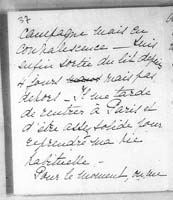 37
campagne mais en
convalescence – Suis
enfin sortie du lit depuis
4 jours mais pas
dehors – Il me tarde
de rentrer à Paris et
d'être assez solide pour
reprendre ma vie
habituelle –
Pour le moment, on me